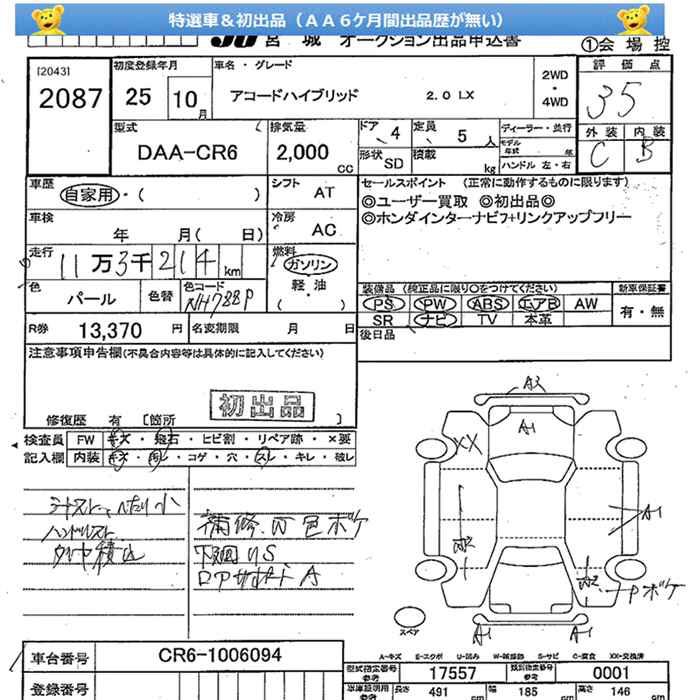 特選車＆初出品（ＡＡ６ケ月間出品歴が無い）
JU 宮 城 オークション出品申込書
①会 場 控
[2043]
2087
初度登録年月
25 10月
車名・グレード
アコードハイブリッド 2.0 LX
2WD
・
4WD
評 価 点
3.5
外 装 内 装
C B
型式
DAA-CR6
排気量
2,000 CC
ドア 4
定員 5 人
形状 SD
積載 kg
ディーラー・並行
モデル年式 年
ハンドル 左・右
車歴
自家用・( )
シフト AT
車検
年 月( 日)
冷房 AC
走行
11万3千214 km
燃料
ガソリン
軽・油
( )
色 パール
色替
色コード NH788P
R券 13,370 円
名変期限 月 日
セールスポイント (正常に動作するものに限ります)
◎ユーザー買取 ◎初出品◎
◎ホンダインターナビﾌ+リンクアップフリー
装備品 (純正品に限り○をつけてください)
PS PW ABS エアB AW
SR ナビ TV 本革
新車保証書
有・無
後日品
注意事項申告欄(不具合内容等は具体的に記入してください)
初出品
修復歴 有 [箇所 ]
検査員
記入欄
FW キズ・飛石・ヒビ割・リペア跡・×要
内装 キズ・コゲ・穴・スレ・キレ・破レ
ハンドルスレ
補修W色ボケ
下廻りS
A2
A1
XX
A1
W2
W2
Pボケ
A1
A1
スペア
A-キズ E-エクボ U-凹み W-補修跡 S-サビ C-腐食 XX-交換済
車台番号 CR6-1006094
型式指定番号 17557
類別指定番号 0001
登録番号
長さ 491 幅 185 高さ 146